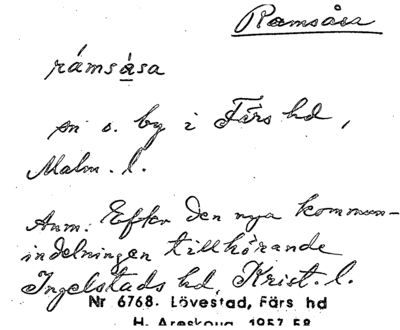 Ramsåsa
rámsåsa
sn o. by i Färs hd,
Malm. l.
Anm. Efter den nya kommun-
indelningen tillhörande
Ingelstads hd, Krist. l.
Nr 6768. Lövestad, Färs hd
H. Areskoug 1957-58